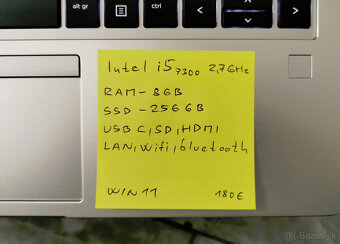 alt gr
Intel i5 7300 2,7GHz
RAM - 8GB
SSD - 256GB
USB C, SD, HDMI
LAN, Wifi, bluetooth
WIN 11 180€
Bazos.sk